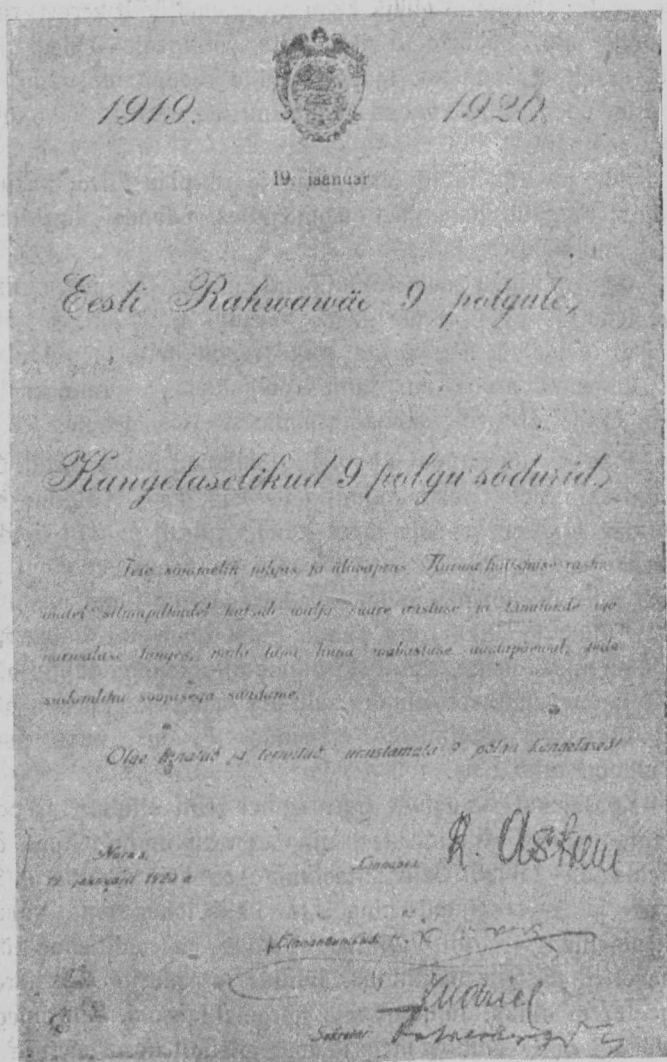 1919. 1920.
19. jaanuar
Eesti Rahwawäe 9 polgule,
Kangelaselikud 9 polgu sõdurid,
Teie südamelik julgus ja Narwa kaitsmise raske-
matel silmapilkudel kutsub wälja suure austuse ja tänutunde iga
narwalase hinges, mida täna, linna wabastuse aastapäewal, teile
südamliku soojusega saadame.
Olge tänatud ja terwitatud, unustamata 9 polgu kangelased!
Narwas,
19. jaanuaril 1920 a.
Linnapea R. Astrem
Sekretär